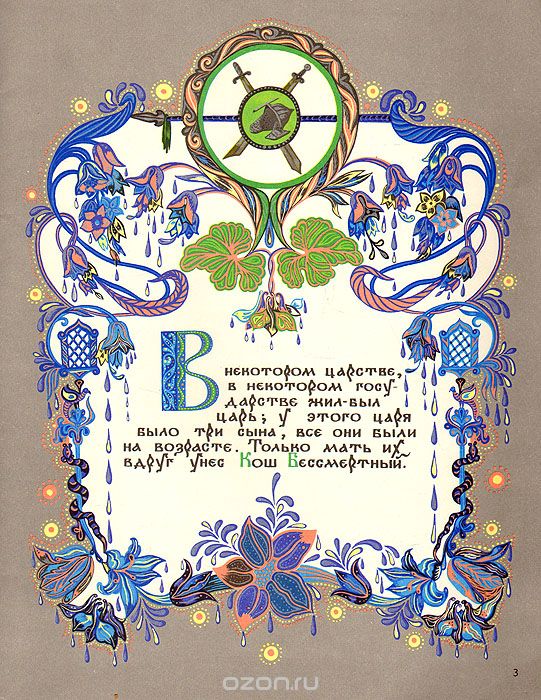 В некотором царстве,
в некотором госу-
дарстве жил-был
царь; у этого царя
было три сына, все они были
на возрасте. Только мать их
вдруг унес Кош Бессмертный.
3
ozon.ru